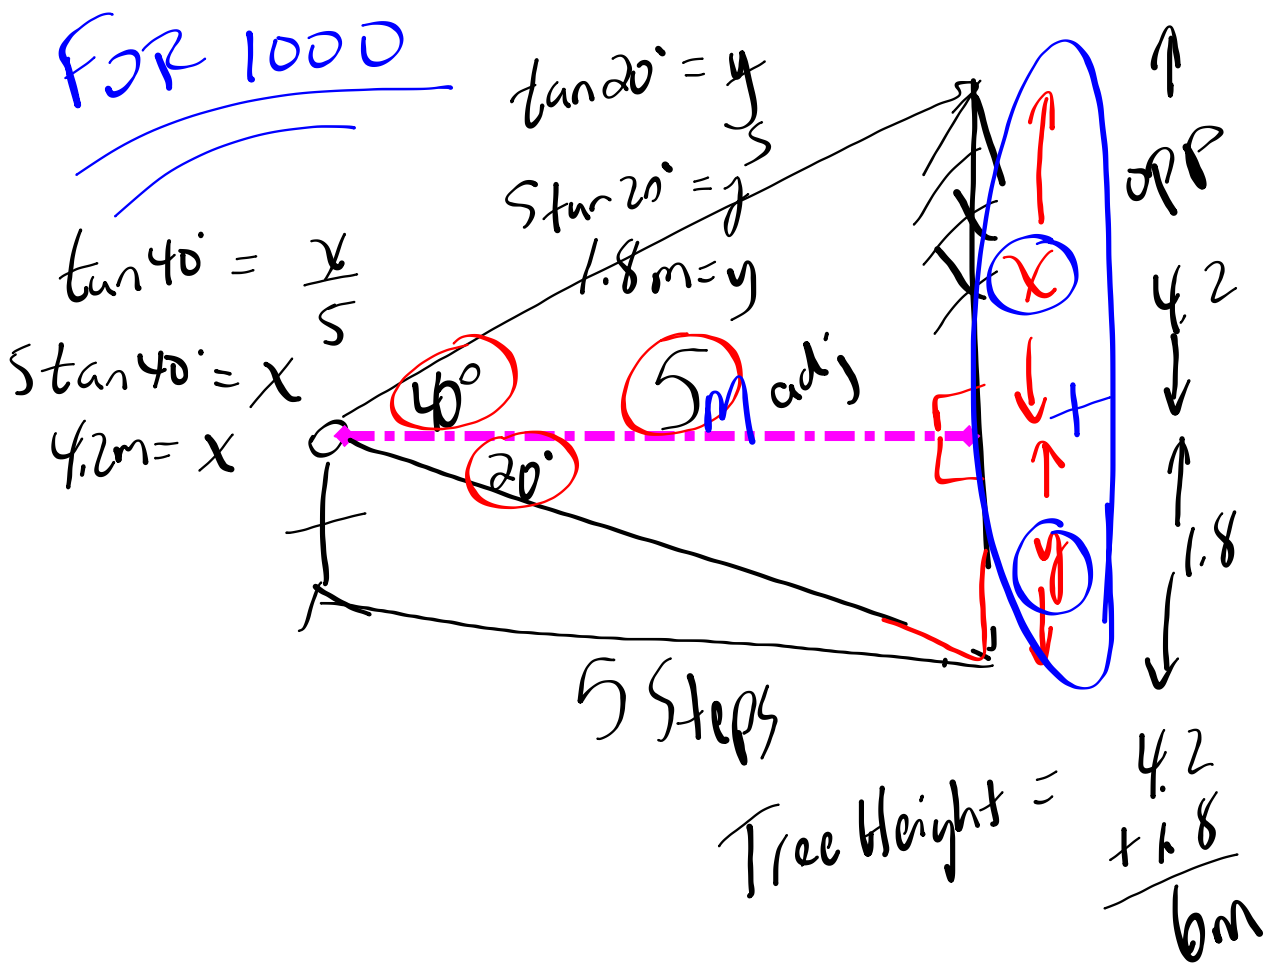 FOR 1000
tan 20° = y
5
5 tan 20° = y
1.8m = y
tan 40° = x
5
5 tan 40° = x
4.2m = x
40°
5m adj
20°
x
+
y
opp
4.2
1.8
5 Steps
Tree Height =
4.2
+ 1.8
6m